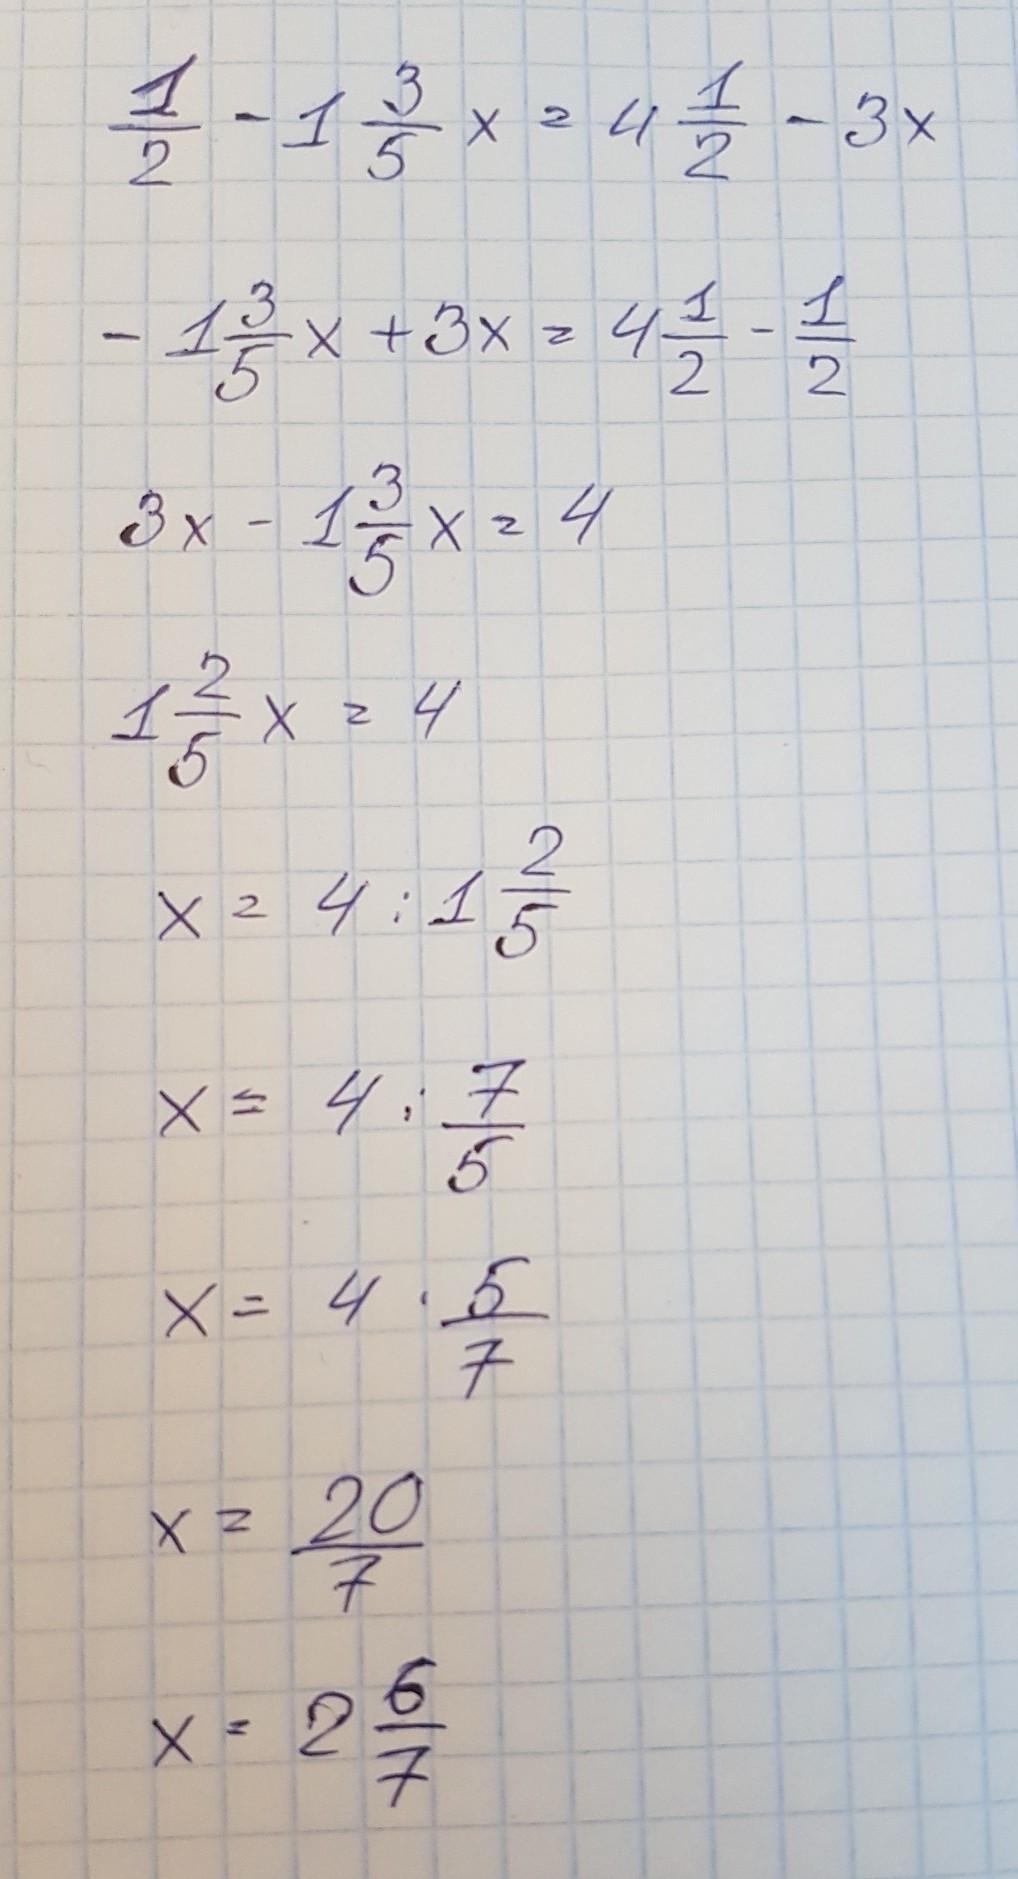 1/2 - 1 3/5 x = 4 1/2 - 3x
- 1 3/5 x + 3x = 4 1/2 - 1/2
3x - 1 3/5 x = 4
1 2/5 x = 4
x = 4 : 1 2/5
x = 4 : 7/5
x = 4 · 5/7
x = 20/7
x = 2 6/7